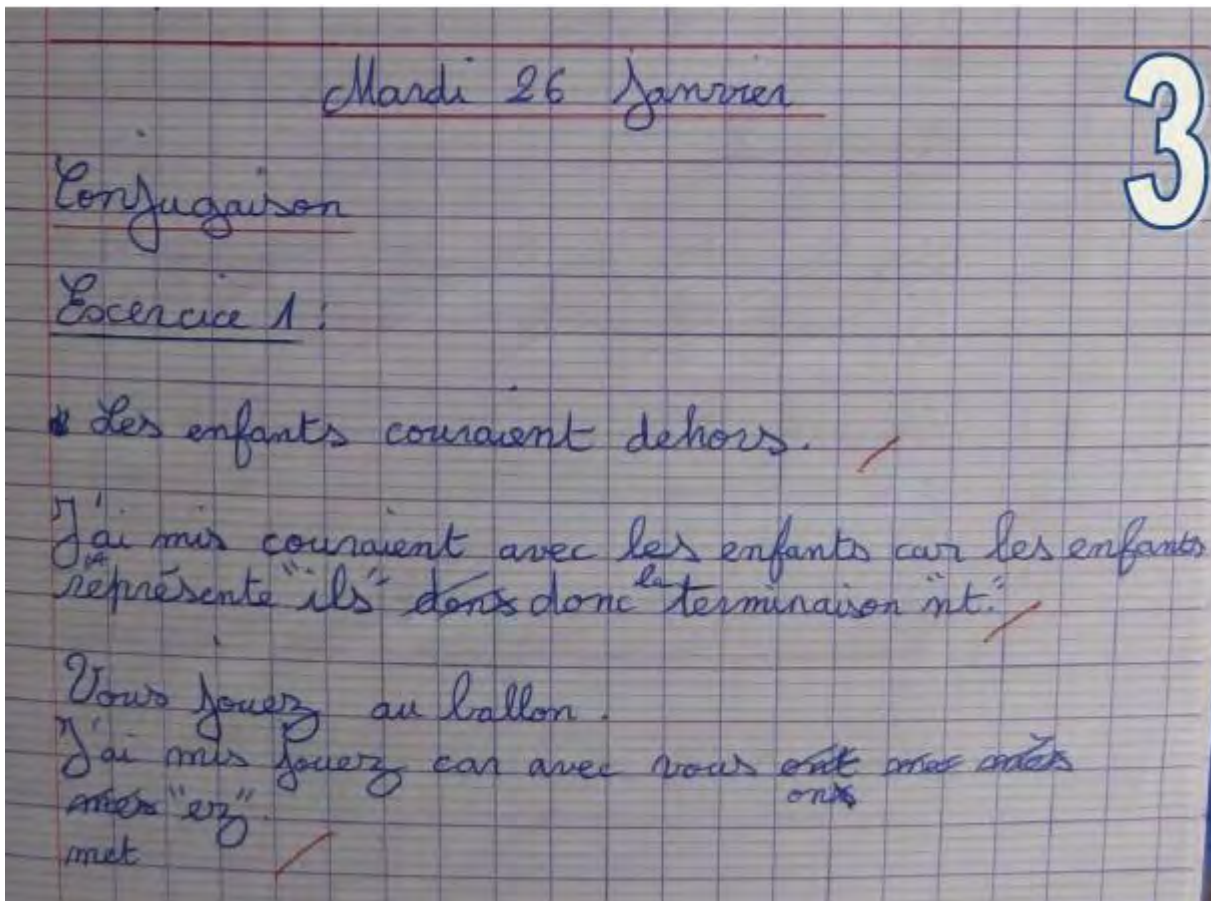 Mardi 26 Janvier
3
Conjugaison
Excercice 1 :
Les enfants couraient dehors.
J'ai mis couraient avec les enfants car les enfants
représente "ils" dons donc la terminaison "nt."
Vous jouez au ballon.
J'ai mis jouez car avec vous ont met mès
on
mes "ez".
met